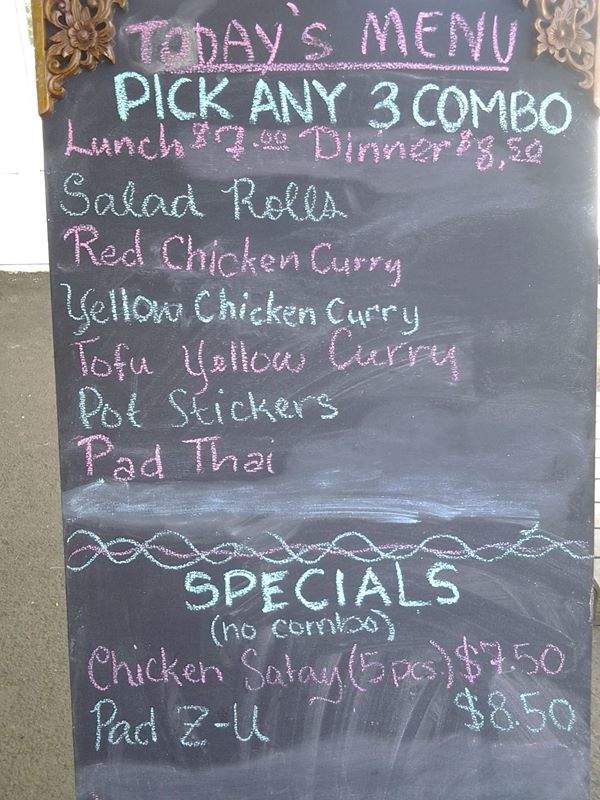 TODAY'S MENU
PICK ANY 3 COMBO
Lunch $7.00 Dinner $8.50
Salad Rolls
Red Chicken Curry
Yellow Chicken Curry
Tofu Yellow Curry
Pot Stickers
Pad Thai
SPECIALS
(no combos)
Chicken Satay (5 pcs.) $7.50
Pad Z-U $8.50